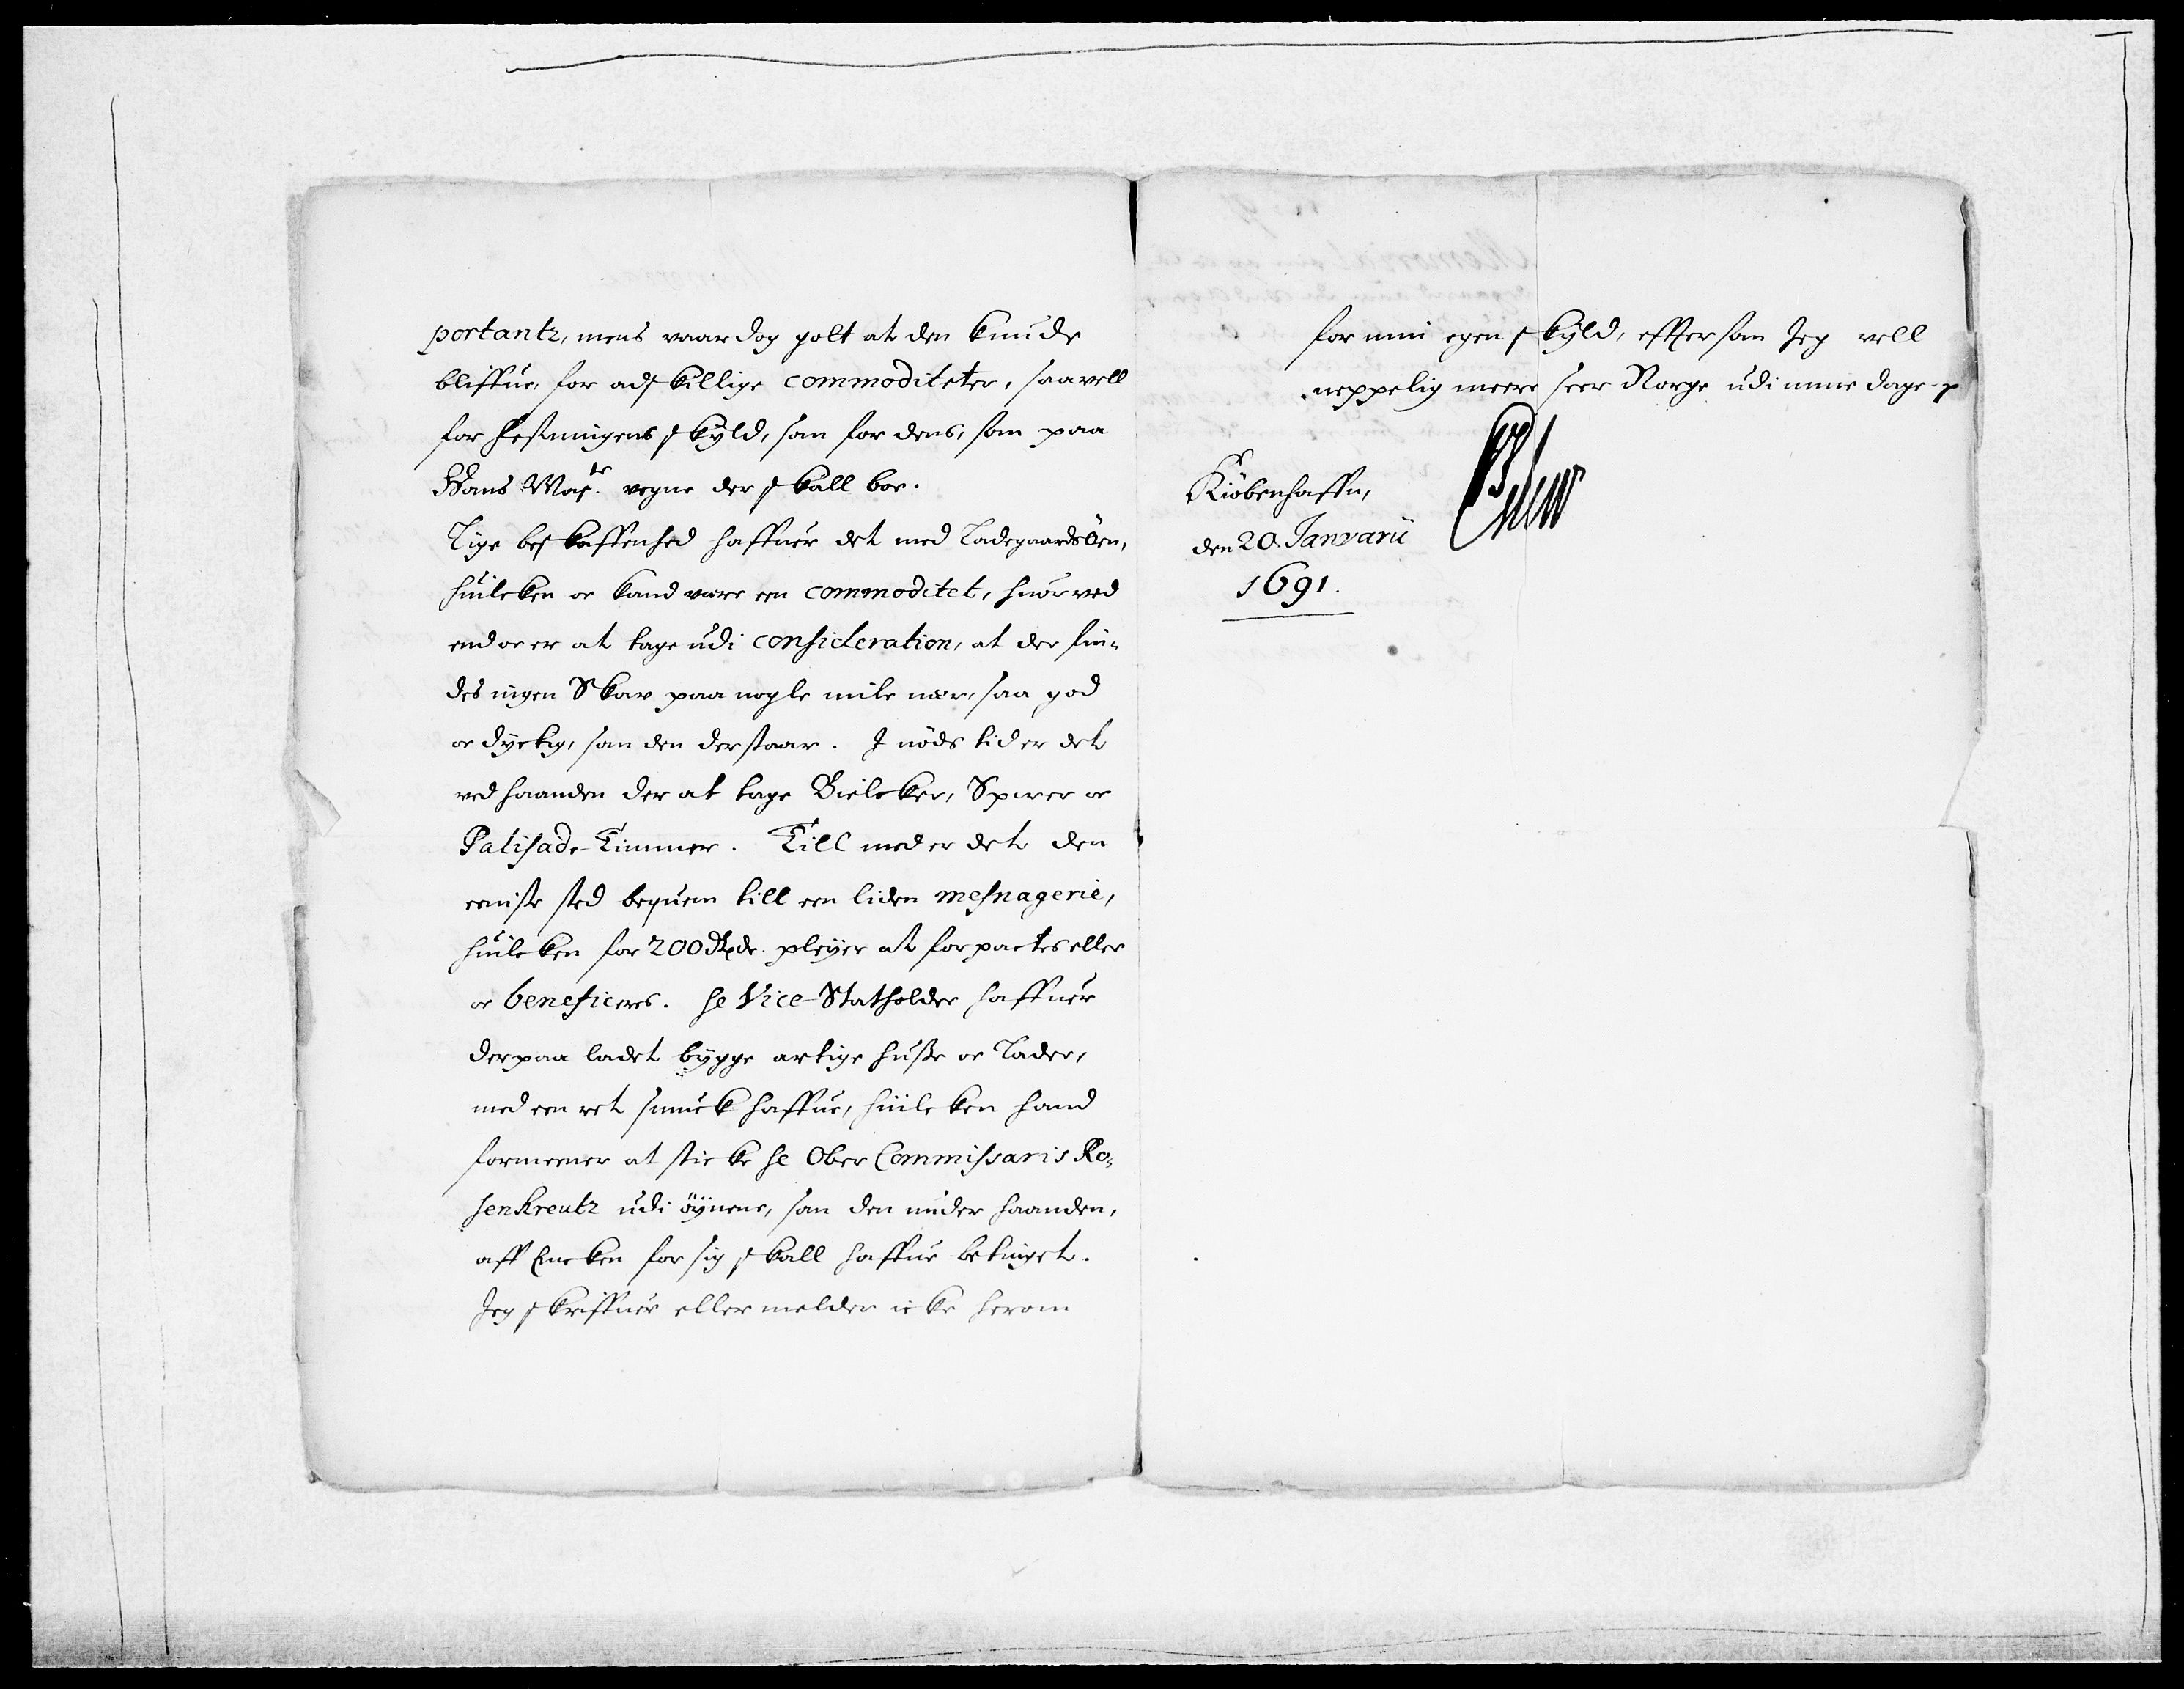 portantz, mens vaar dog golt at den kunde
bliffue, for adskillige commoditeter, saavell
for Festningens skyld, som for dens, som paa
Hans Maj.ts vegne der skall boe.
Lige beskaffenhed haffuer det med LadegaardsÖen,
huilcken oc kand være een commoditet, huorved
end oc er at tage udi consideration, at der fin-
des ingen Skov paa nogle mile nær, saa god
oc dyctig, som den der staar. I nöds tid er det
ved haanden der at tage Bielcker, Sparer oc
Palisade-Timmer. Till med er det den
eeniste sted beqvem till een liden mesnagerie,
huilcken for 200 Rdr. pleyer at forpactes eller
oc beneficeres. Hr Vice-Statholder haffuer
derpaa ladet bygge artige Huse oc Lader,
med een ret smuck haffue, huilcken hand
formeener at sticke Hr Ober Commissaris Ro-
senkreutz udi öynene, som den under haanden,
aff Encken for sig skall haffue betinget.
Jeg skriffuer eller melder icke herom
for min egen skyld, efftersom Jeg vell
neppelig meere seer Norge udi mine dage
Kiöbenhaffn,
den 20. Janvarii
1691.